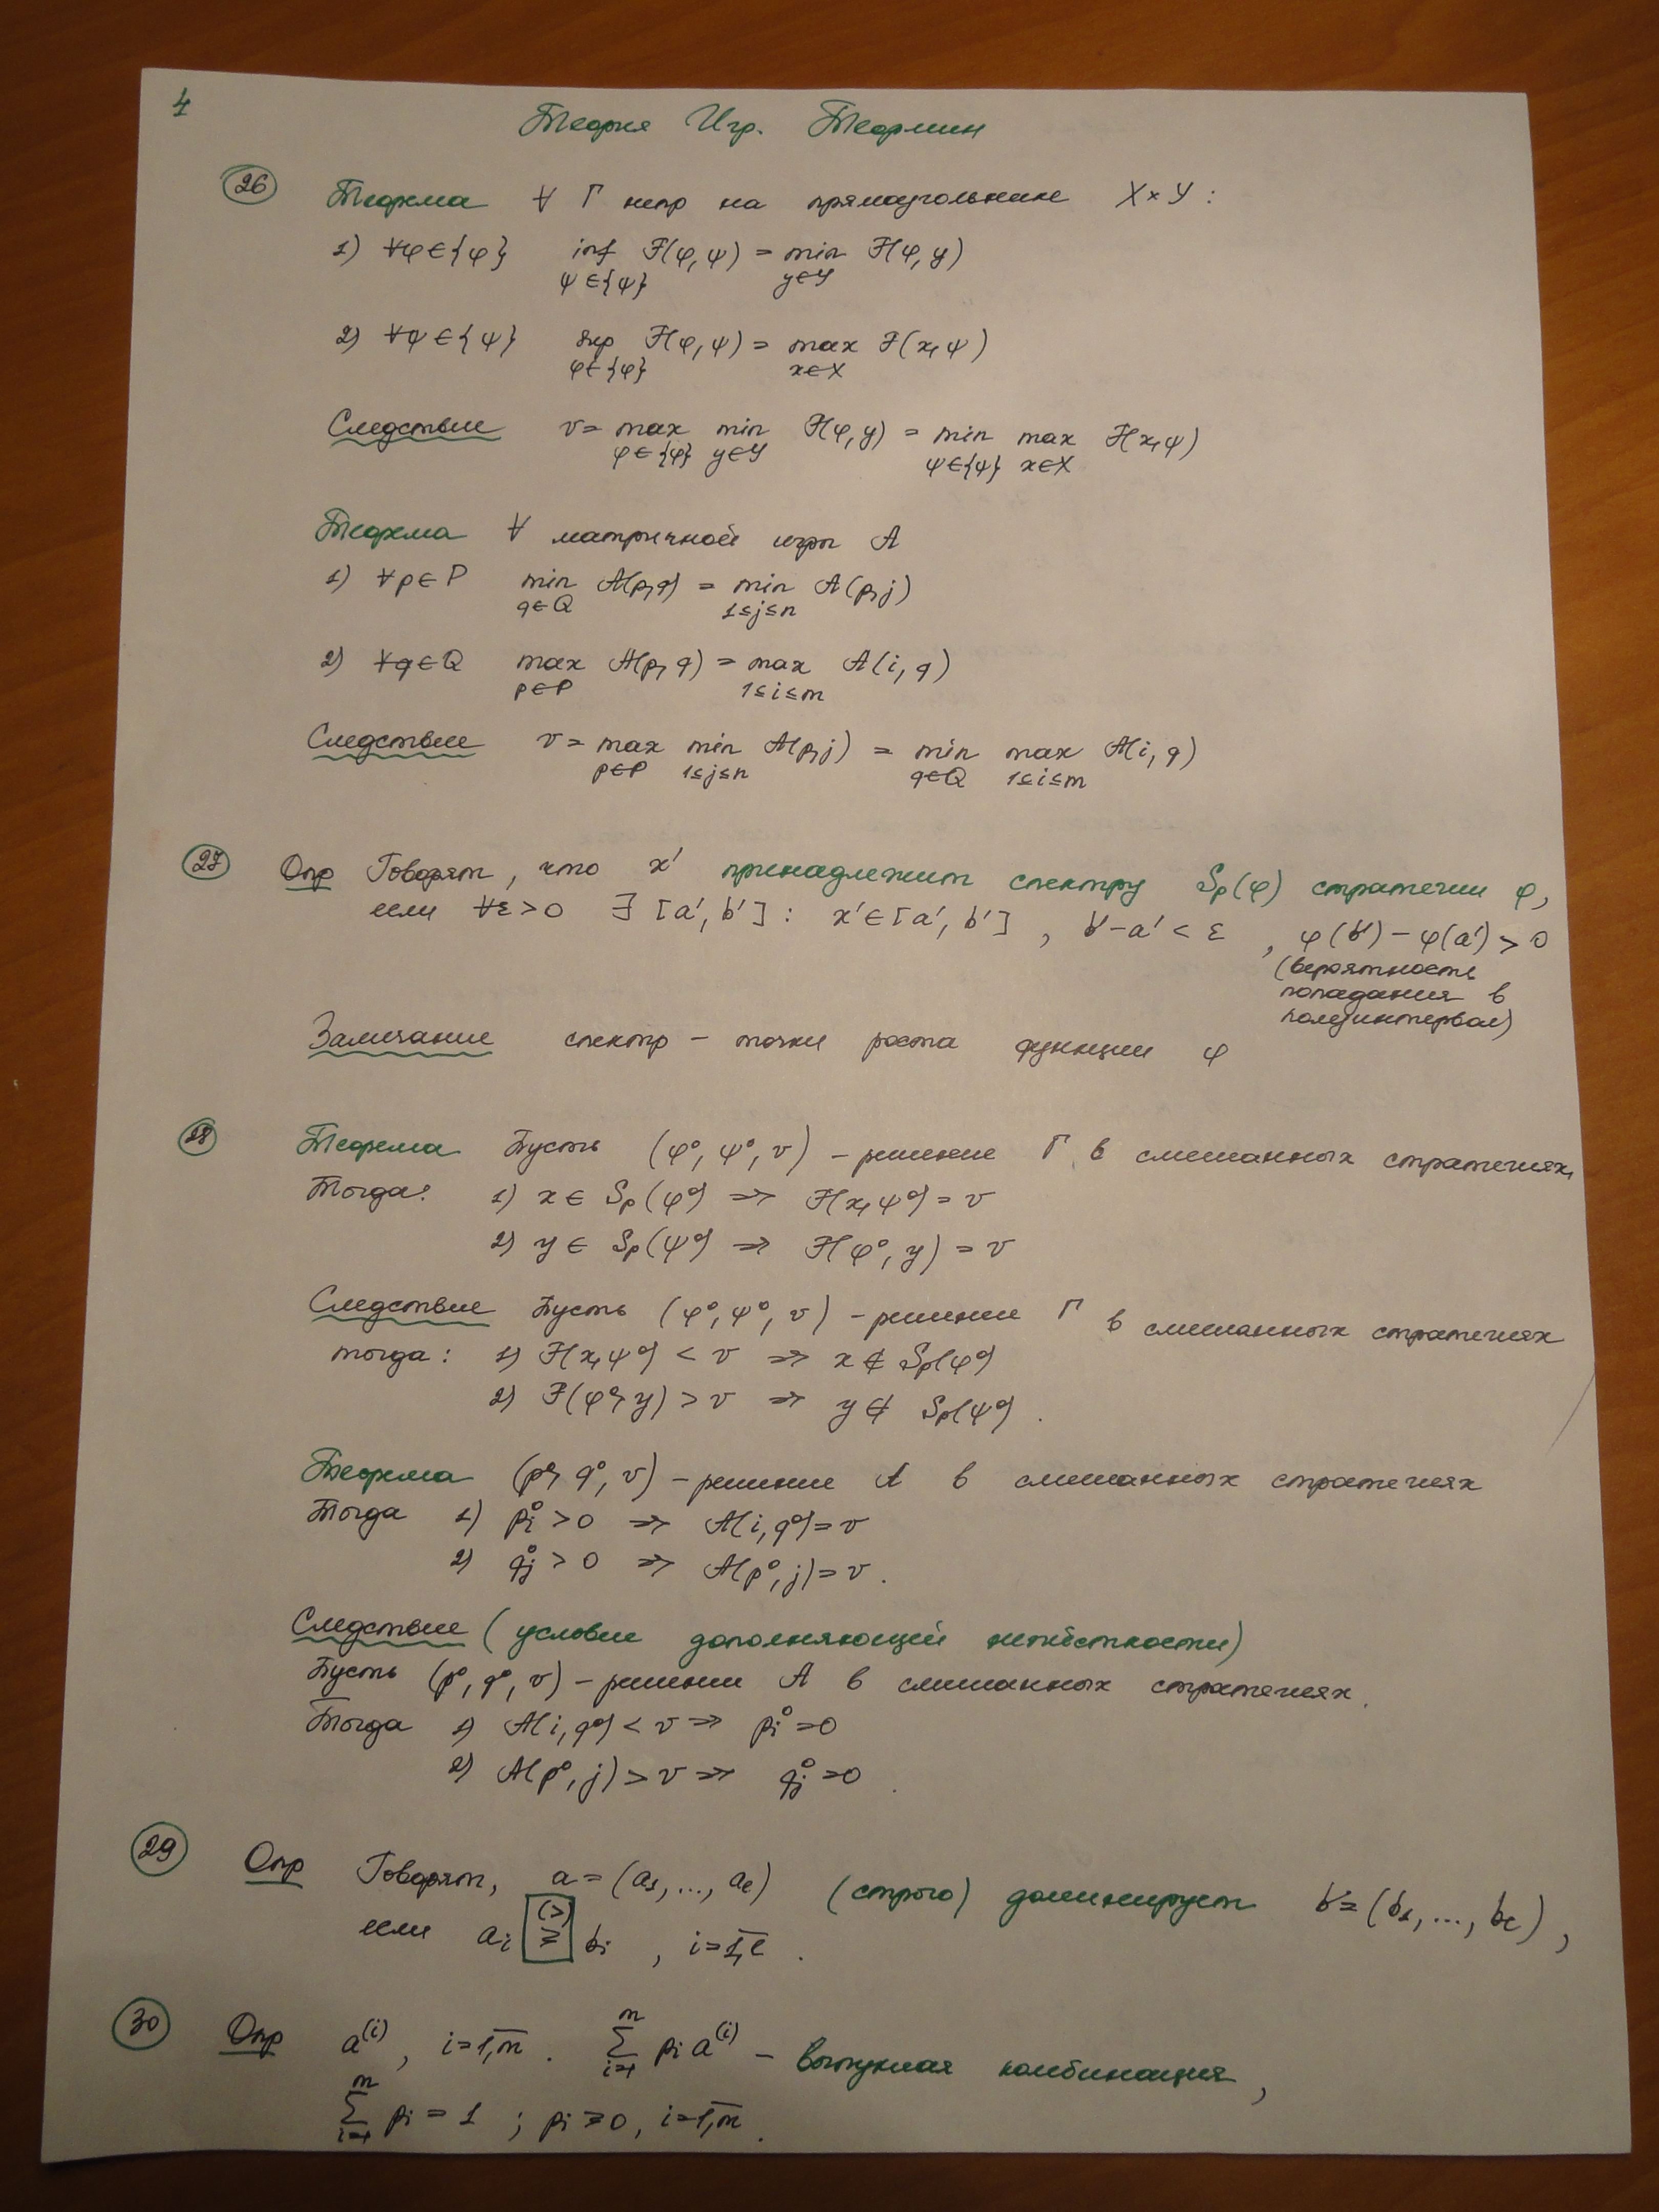 4
Теория Игр. Теормин
26 Теорема ∀ Г непр на прямоугольнике X×Y :
1) ∀φ∈{φ} inf F(φ,ψ) = min F(φ,y)
ψ∈{ψ} y∈Y
2) ∀ψ∈{ψ} sup F(φ,ψ) = max F(x,ψ)
φ∈{φ} x∈X
Следствие v = max min F(φ,y) = min max F(x,ψ)
φ∈{φ} y∈Y ψ∈{ψ} x∈X
Теорема ∀ матричной игры A
1) ∀p∈P min A(p,q) = min A(p,j)
q∈Q 1≤j≤n
2) ∀q∈Q max A(p,q) = max A(i,q)
p∈P 1≤i≤m
Следствие v = max min A(p,j) = min max A(i,q)
p∈P 1≤j≤n q∈Q 1≤i≤m
27 Опр Говорят, что x' принадлежит спектру Sp(φ) стратегии φ,
если ∀ε>0 ∃ [a', b'] : x'∈[a', b'] , b'-a' < ε , φ(b') - φ(a') > 0
(вероятность
попадания в
полуинтервал)
Замечание спектр – точки роста функции φ
28 Теорема Пусть (φ⁰, ψ⁰, v) – решение Г в смешанных стратегиях,
Тогда: 1) x ∈ Sp(φ⁰) ⇒ F(x,ψ⁰) = v
2) y ∈ Sp(ψ⁰) ⇒ F(φ⁰, y) = v
Следствие Пусть (φ⁰, ψ⁰, v) – решение Г в смешанных стратегиях
тогда: 1) F(x,ψ⁰) < v ⇒ x ∉ Sp(φ⁰)
2) F(φ⁰,y) > v ⇒ y ∉ Sp(ψ⁰) .
Теорема (p⁰, q⁰, v) – решение A в смешанных стратегиях
Тогда 1) pᵢ⁰ > 0 ⇒ A(i,q⁰) = v
2) qⱼ⁰ > 0 ⇒ A(p⁰, j) = v .
Следствие (условие дополняющей нежёсткости)
Пусть (p⁰, q⁰, v) – решение A в смешанных стратегиях.
Тогда 1) A(i,q⁰) < v ⇒ pᵢ⁰ = 0
2) A(p⁰, j) > v ⇒ qⱼ⁰ = 0 .
29 Опр Говорят, a = (a₁, ..., aₗ) (строго) доминирует b = (b₁, ..., bₗ) ,
если aᵢ (>) ≥ bᵢ , i = 1,l .
30 Опр a⁽ⁱ⁾, i = 1,m . ∑ᵢ₌₁ᵐ pᵢ a⁽ⁱ⁾ – выпуклая комбинация,
∑ᵢ₌₁ᵐ pᵢ = 1 ; pᵢ ≥ 0, i = 1,m .